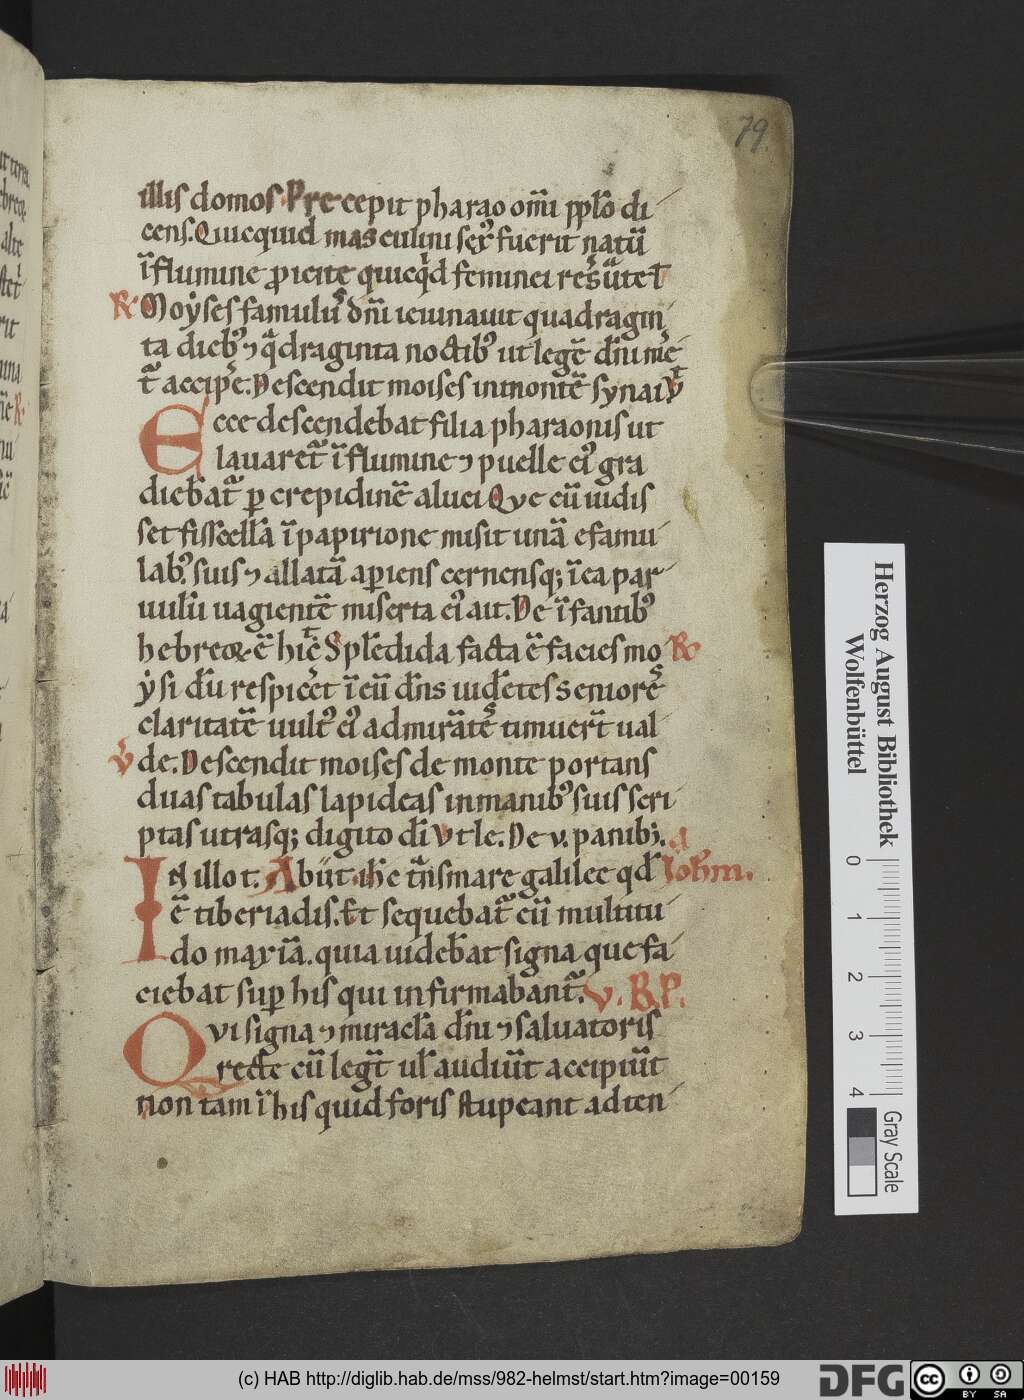 79.
illis domos. Precepit pharao om̄i pp̄lo di
cens. Quicquid masculini sex᷒ fuerit natū
ī flumine proicite quicq̇d feminei reẜuate
R Moẏses famulus dn̄i ieiunauit quadragin
ta dieb᷒ ⁊ q̄draginta noctib᷒ ut legē dn̄i me
accipe. Descendit moises in montē synai v
Ecce descendebat filia pharaonis ut
lauaret᷑ ī flumine ⁊ puelle ei᷒ gra
diebat᷑ ꝑ crepidinē aluei Que cū uidis
set fiscellā ī papirione misit unā e famu
lab᷒ suis ⁊ allatā aperiens cernensq; ī ea par
uulū uagientē miserta ei᷒ ait. De īfantib᷒
hebreoꝝ ē hic Splēdida facta ē facies mo R
ẏsi dū respiceret ī eū dn̄s uidētes seniores
claritatē uult᷒ ei᷒ admirātes timuer̄t ual
v de. Descendit moises de monte portans
duas tabulas lapideas in manib᷒ suis scri
ptas utrasq; digito dī Vt le. De v. panib;.
In illo t. Abiit ih̄c tn̄s mare galilee qd̄ Ioh̄m.
ē tiberiadis. Et sequebat᷑ eū multitu
do maxīa. quia uidebat signa que fa
ciebat sup̄ his qui infirmabant᷑. V. B. P.
Qvi signa ⁊ miracl̄a dn̄i ⁊ saluatoris
recte cū legit ul̄ audiūt accipiūt
non tam ī his quid foris stupeant adten
Herzog August Bibliothek
Wolfenbüttel
0 1 2 3 4
Gray Scale
(c) HAB http://diglib.hab.de/mss/982-helmst/start.htm?image=00159
DFG
cc BY SA